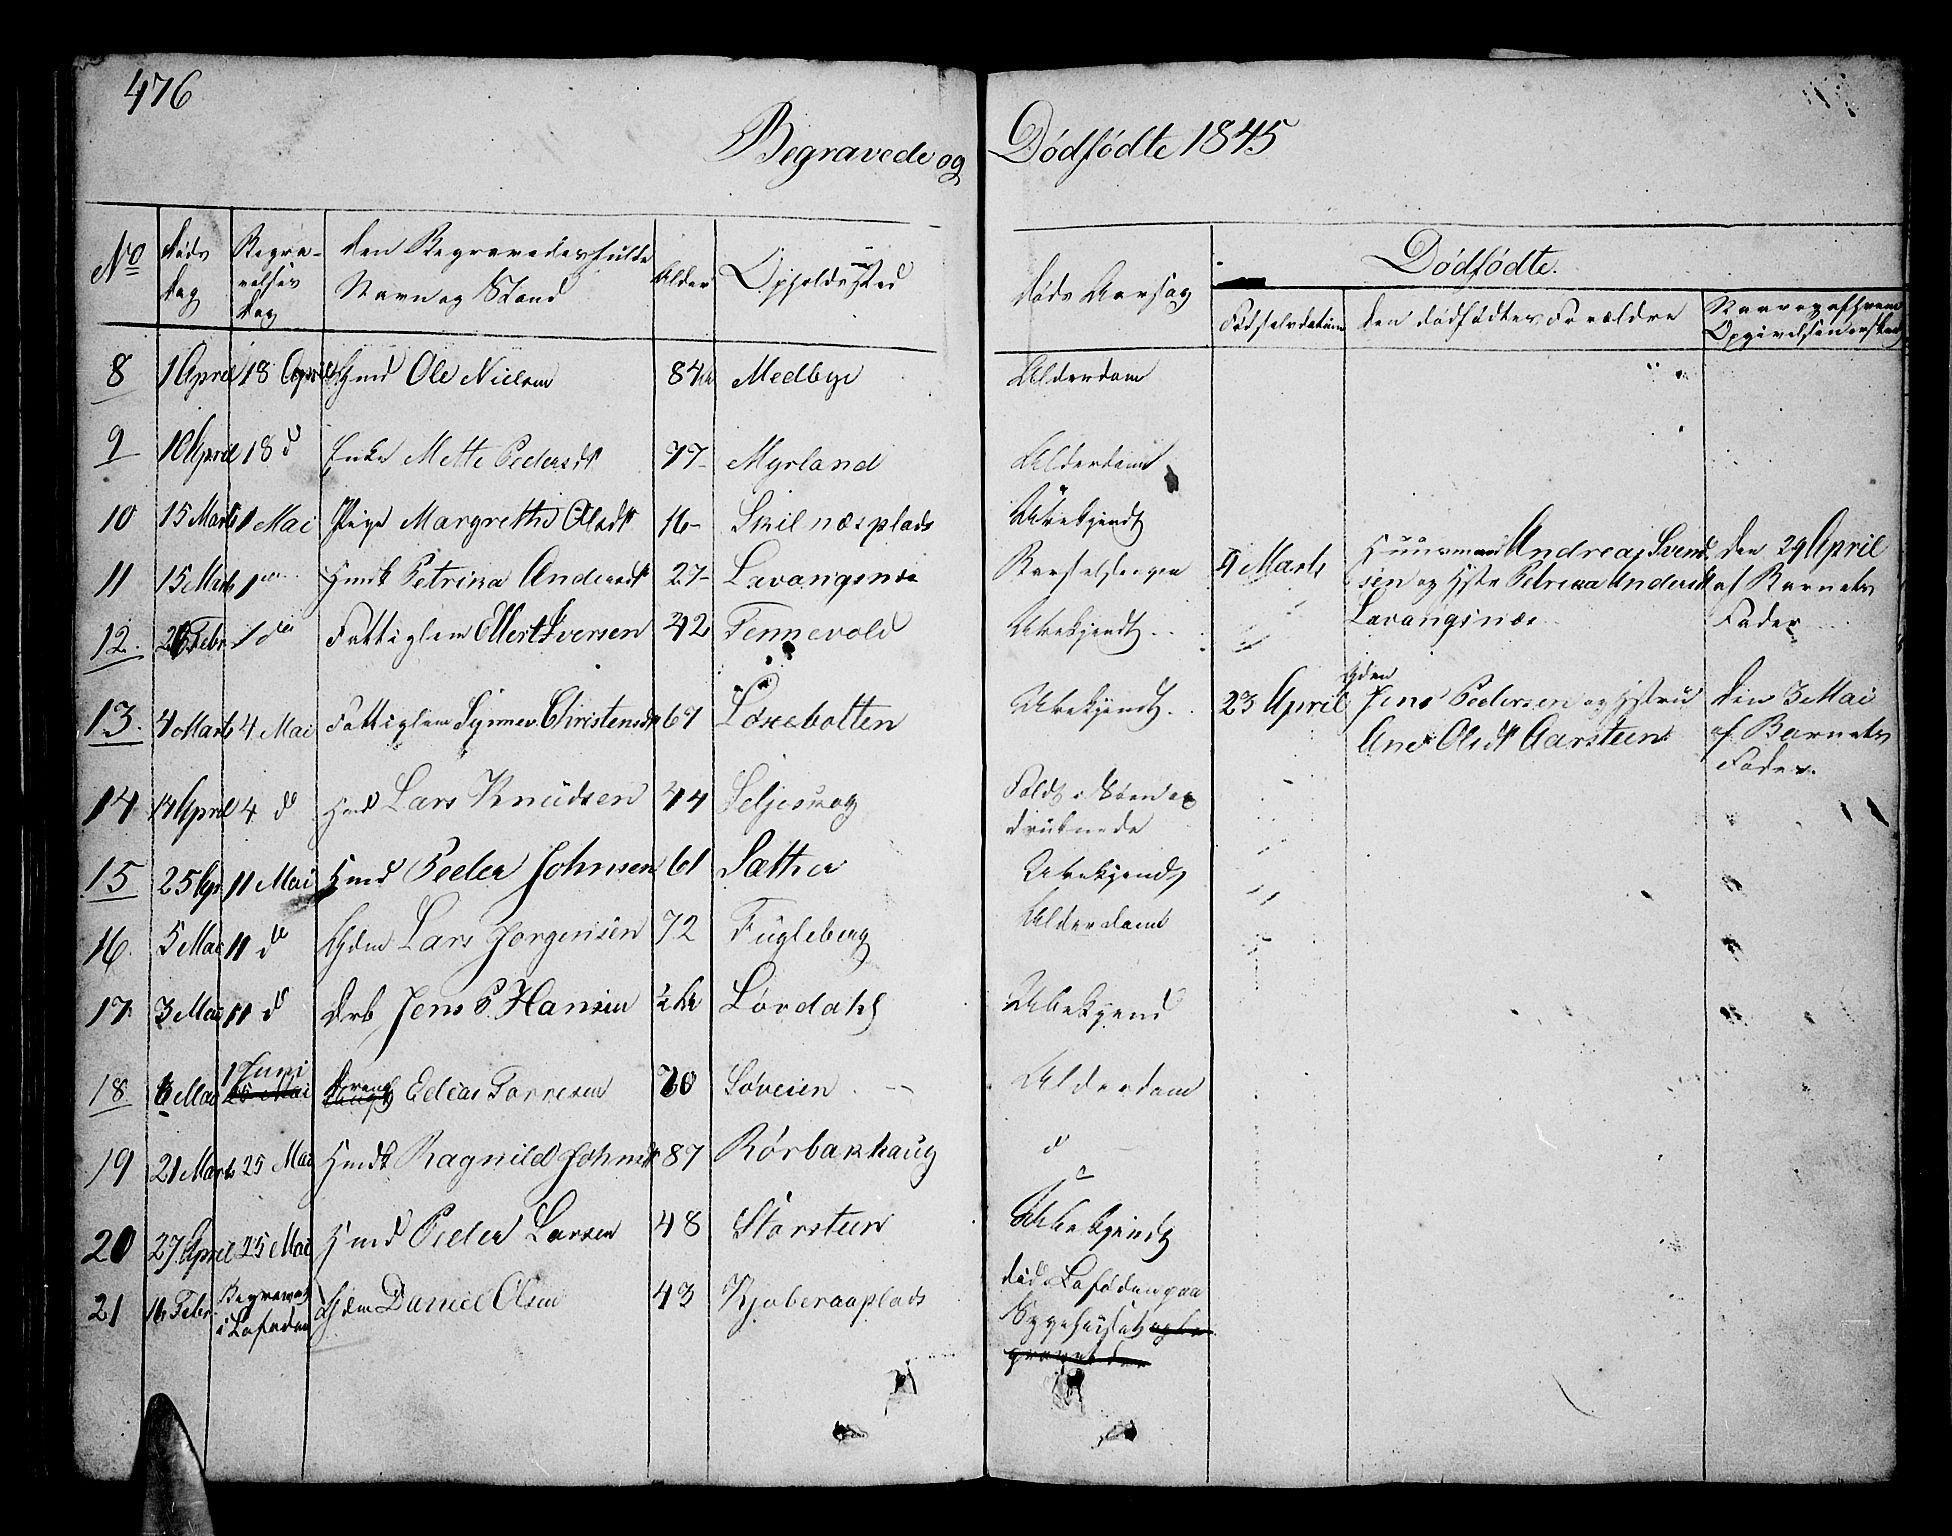 476
Begravede og Dødfødte 1845
No
Døds Dag
Begravelses Dag
Den Begravedes fulde Navn og Stand
Alder
Opholdssted
Døds Aarsag
Dødfødte.
Fødselsdatum
Den dødfødtes Forældre
8 1 April 18 April Hmd Ole Nielsen 84 Medbye Alderdom
9 10 April 18 d Enke Mette Pedersdt 77 Myrland Alderdom
10 15 Marts 1 Mai Pige Margrethe Olsdt 16 Skilnæsplads Ubekjendt
11 15 Marts 1 Hmdk Petrina Andersdt 27 Lavangsnæs Barselseng 9 Marts Huusmand Andreas Svendsen og Hstr Petrina Andersdt Lavangsnæs Den 29 April af Barnets Fader
12. 26 Febr 1 do Fattiglem Ellert Iversen 42 Tennevold Ubekjendt
13. 4 Marts 4 Mai Fattiglem Synnev Christensdt 67 Løxebotten Ubekjendt 23 April Gdm Jens Pedersen og Hstru Ane Olsdt Aarsteen Den 3 Mai af Barnets Fader.
14 14 April 4 d Hmd Lars Knudsen 44 Seljeskog Faldt i Søen og druknede
15 25 Apr 11 Mai Hmd Peder Johnsen 61 Sæther Ubekjendt
16. 5 Mai 11 do Gdm Lars Jørgensen 72 Fugleberg Alderdom
17. 3 Mai 11 d Drb Jens P. Hansen 1/2 Aar Lørdahl Ubekjend
18. 6 Mai 1 Juni 25 Mai Dreng Edeas Torresen 70 Søveien Alderdom
19 21 Marts 25 Mai Hmdk Ragnild Johnsdt 87 Rørbakhaug d
20 27 April 25 Mai Hmd Peder Larsen 48 Storsteen Ubekjendt
21 16 Febr. Begravet i Lofoden Gdm Daniel Olsen 43 Kjøberaaplads død i Lofoden paa Sygehuset og begravet der